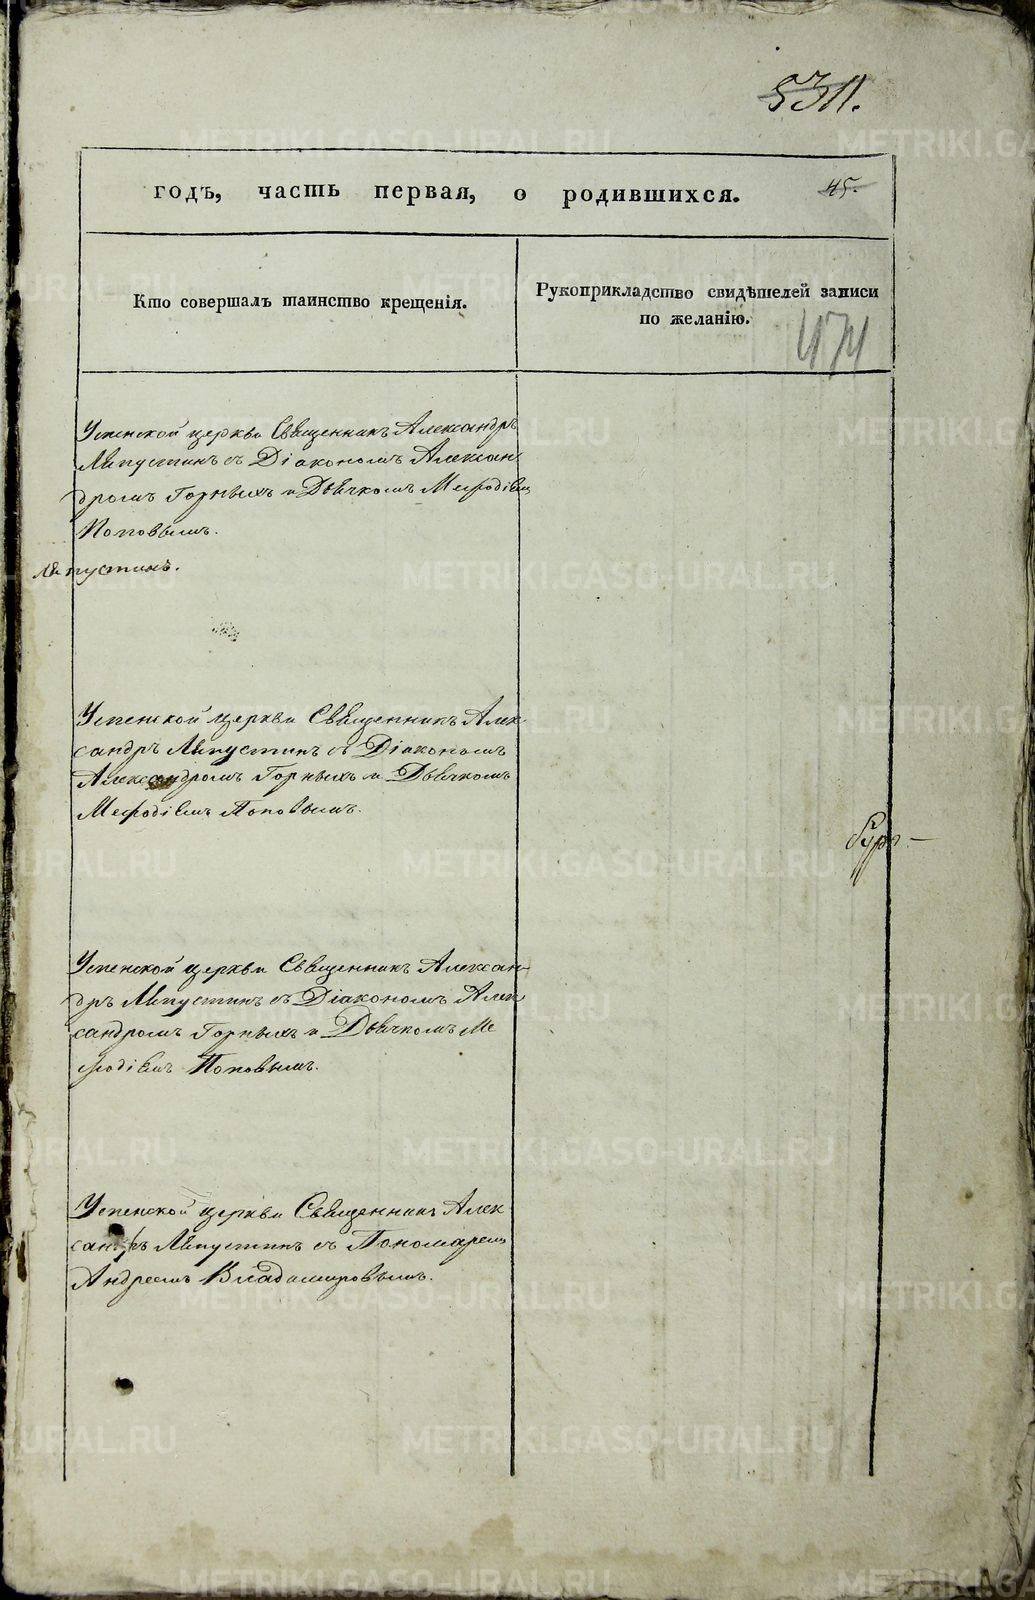 METRIKI.GASO-URAL.RU
годъ, часть первая, о родившихся.
45.
Кто совершалъ таинство крещенія.
Рукоприкладство свидѣтелей записи
по желанію.
474
Успенской церкви Священникъ Александръ
Ляпустинъ съ Діакономъ Алексан
дромъ Горныхъ и Дьячкомъ Меѳодіемъ
Поповымъ.
Ляпустинъ.
Успенской церкви Священникъ Алек-
сандръ Ляпустинъ съ Діакономъ
Александромъ Горныхъ и Дьячкомъ
Меѳодіемъ Поповымъ.
Успенской церкви Священникъ Алексан-
дръ Ляпустинъ съ Діакономъ Алек
сандромъ Горныхъ и Дьячкомъ Ме
ѳодіемъ Поповымъ.
Успенской церкви Священникъ Алек
сандръ Ляпустинъ съ Пономаремъ
Андреемъ Владимировымъ.